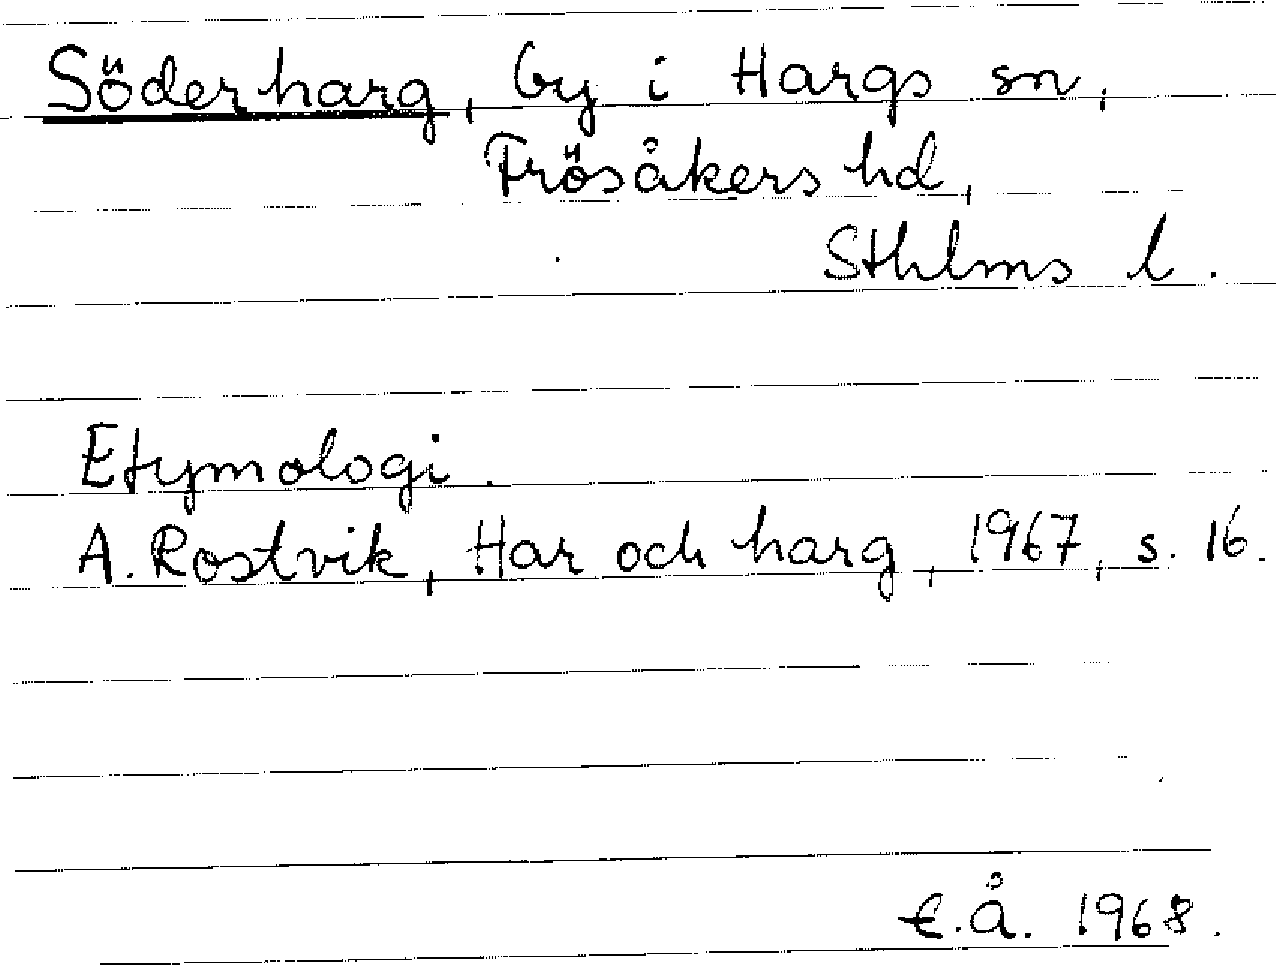 Söderharg, by i Hargs sn,
Frösåkers hd,
Sthlms l.
Etymologi.
A. Rostvik, Har och harg, 1967, s. 16.
E.Å. 1968.